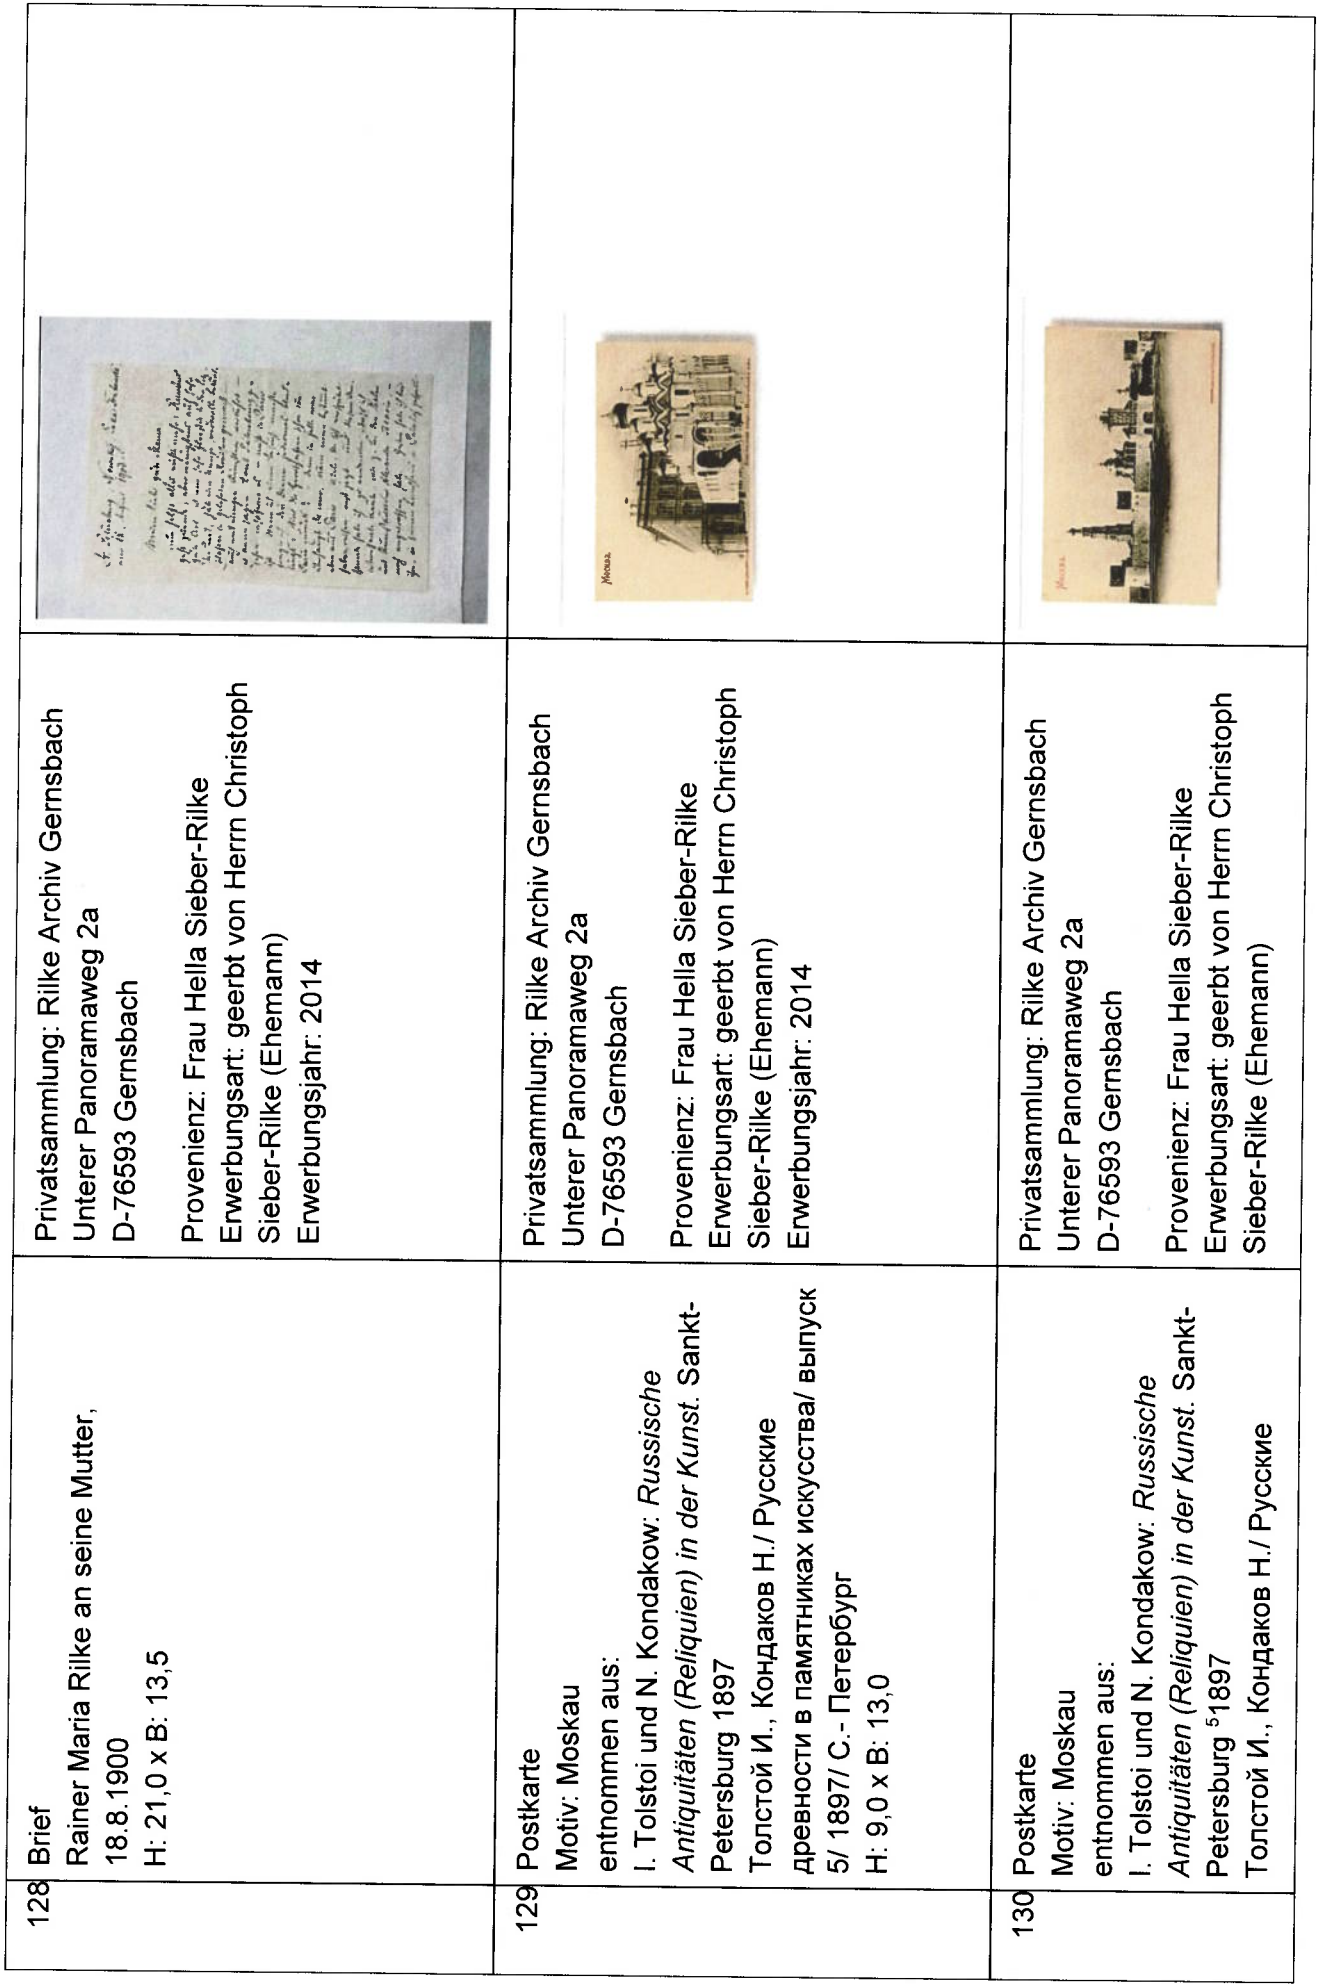 128
Brief
Rainer Maria Rilke an seine Mutter,
18.8.1900
H: 21,0 x B: 13,5
Privatsammlung: Rilke Archiv Gernsbach
Unterer Panoramaweg 2a
D-76593 Gernsbach
Provenienz: Frau Hella Sieber-Rilke
Erwerbungsart: geerbt von Herrn Christoph
Sieber-Rilke (Ehemann)
Erwerbungsjahr: 2014
129
Postkarte
Motiv: Moskau
entnommen aus:
I. Tolstoi und N. Kondakow: Russische
Antiquitäten (Reliquien) in der Kunst. Sankt-
Petersburg 1897
Толстой И., Кондаков Н./ Русские
древности в памятниках искусства/ выпуск
5/ 1897/ С.- Петербург
H: 9,0 x B: 13,0
Privatsammlung: Rilke Archiv Gernsbach
Unterer Panoramaweg 2a
D-76593 Gernsbach
Provenienz: Frau Hella Sieber-Rilke
Erwerbungsart: geerbt von Herrn Christoph
Sieber-Rilke (Ehemann)
Erwerbungsjahr: 2014
Москва
130
Postkarte
Motiv: Moskau
entnommen aus:
I. Tolstoi und N. Kondakow: Russische
Antiquitäten (Reliquien) in der Kunst. Sankt-
Petersburg ⁵1897
Толстой И., Кондаков Н./ Русские
Privatsammlung: Rilke Archiv Gernsbach
Unterer Panoramaweg 2a
D-76593 Gernsbach
Provenienz: Frau Hella Sieber-Rilke
Erwerbungsart: geerbt von Herrn Christoph
Sieber-Rilke (Ehemann)
Москва